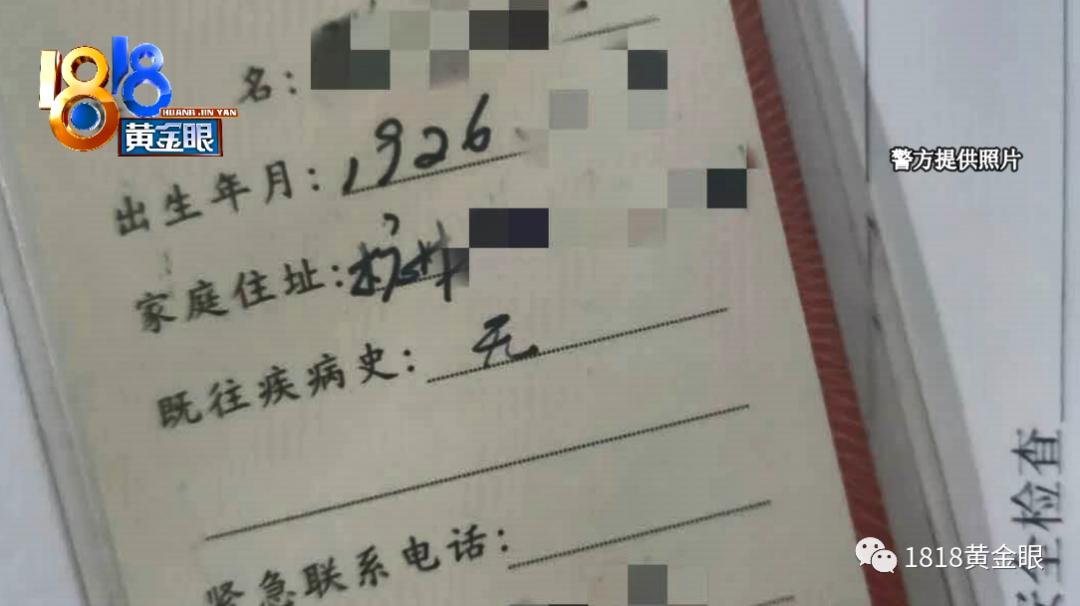 1818
HUANG JIN YAN
黄金眼
名：
出生年月：1926
家庭住址：杭州
既往疾病史：无
紧急联系电话：
警方提供照片
安全检查
1818黄金眼